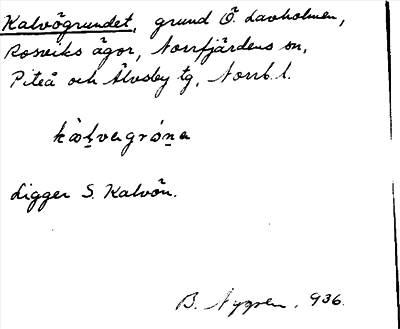 Kalvögrundet, grund Ö. Lavholmen,
Rosviks ägor, Norrfjärdens sn,
Piteå och Älvsby tg, Norrb. l.
kàḷvagróṇa
Ligger S. Kalvön.
B. Nygren. 936.